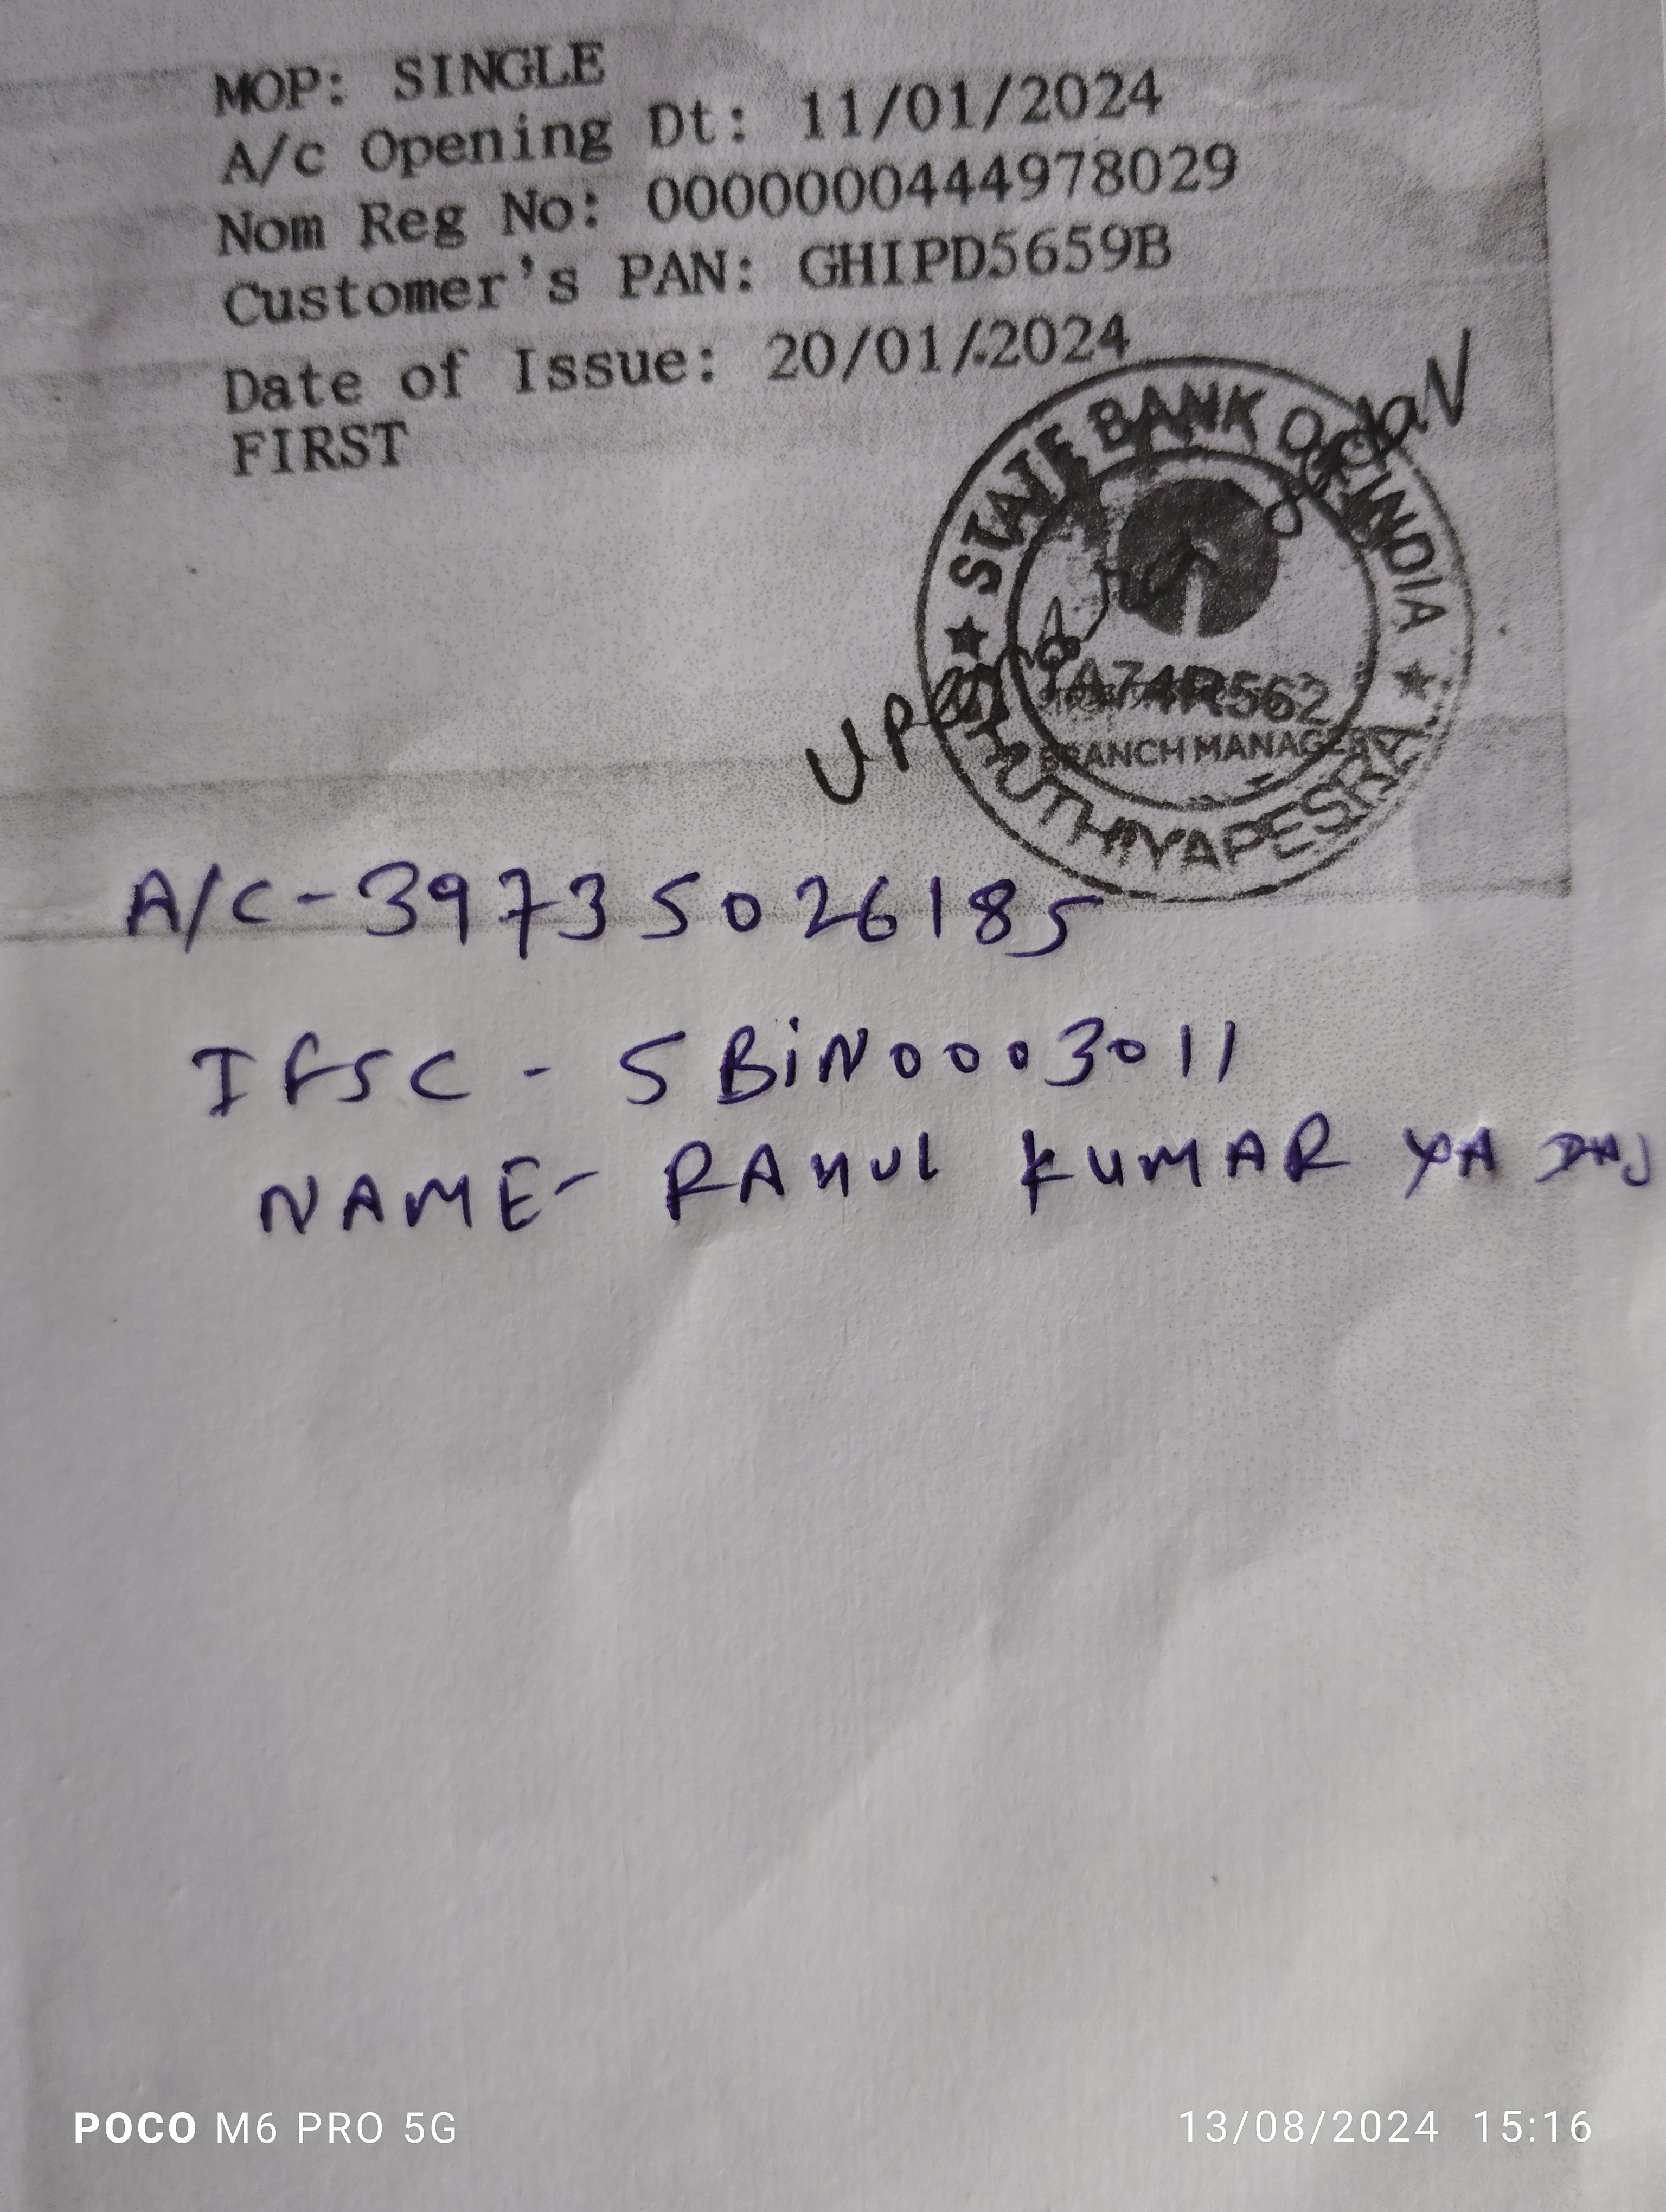 MOP: SINGLE
A/c Opening Dt: 11/01/2024
Nom Reg No: 0000000444978029
Customer's PAN: GHIPD5659B
Date of Issue: 20/01/2024
FIRST
STATE BANK OF INDIA
A74R562
BRANCH MANAGER
A/C-39735026185
IFSC - SBiN0003011
NAME- RAHUL KUMAR YADAV
POCO M6 PRO 5G
13/08/2024 15:16